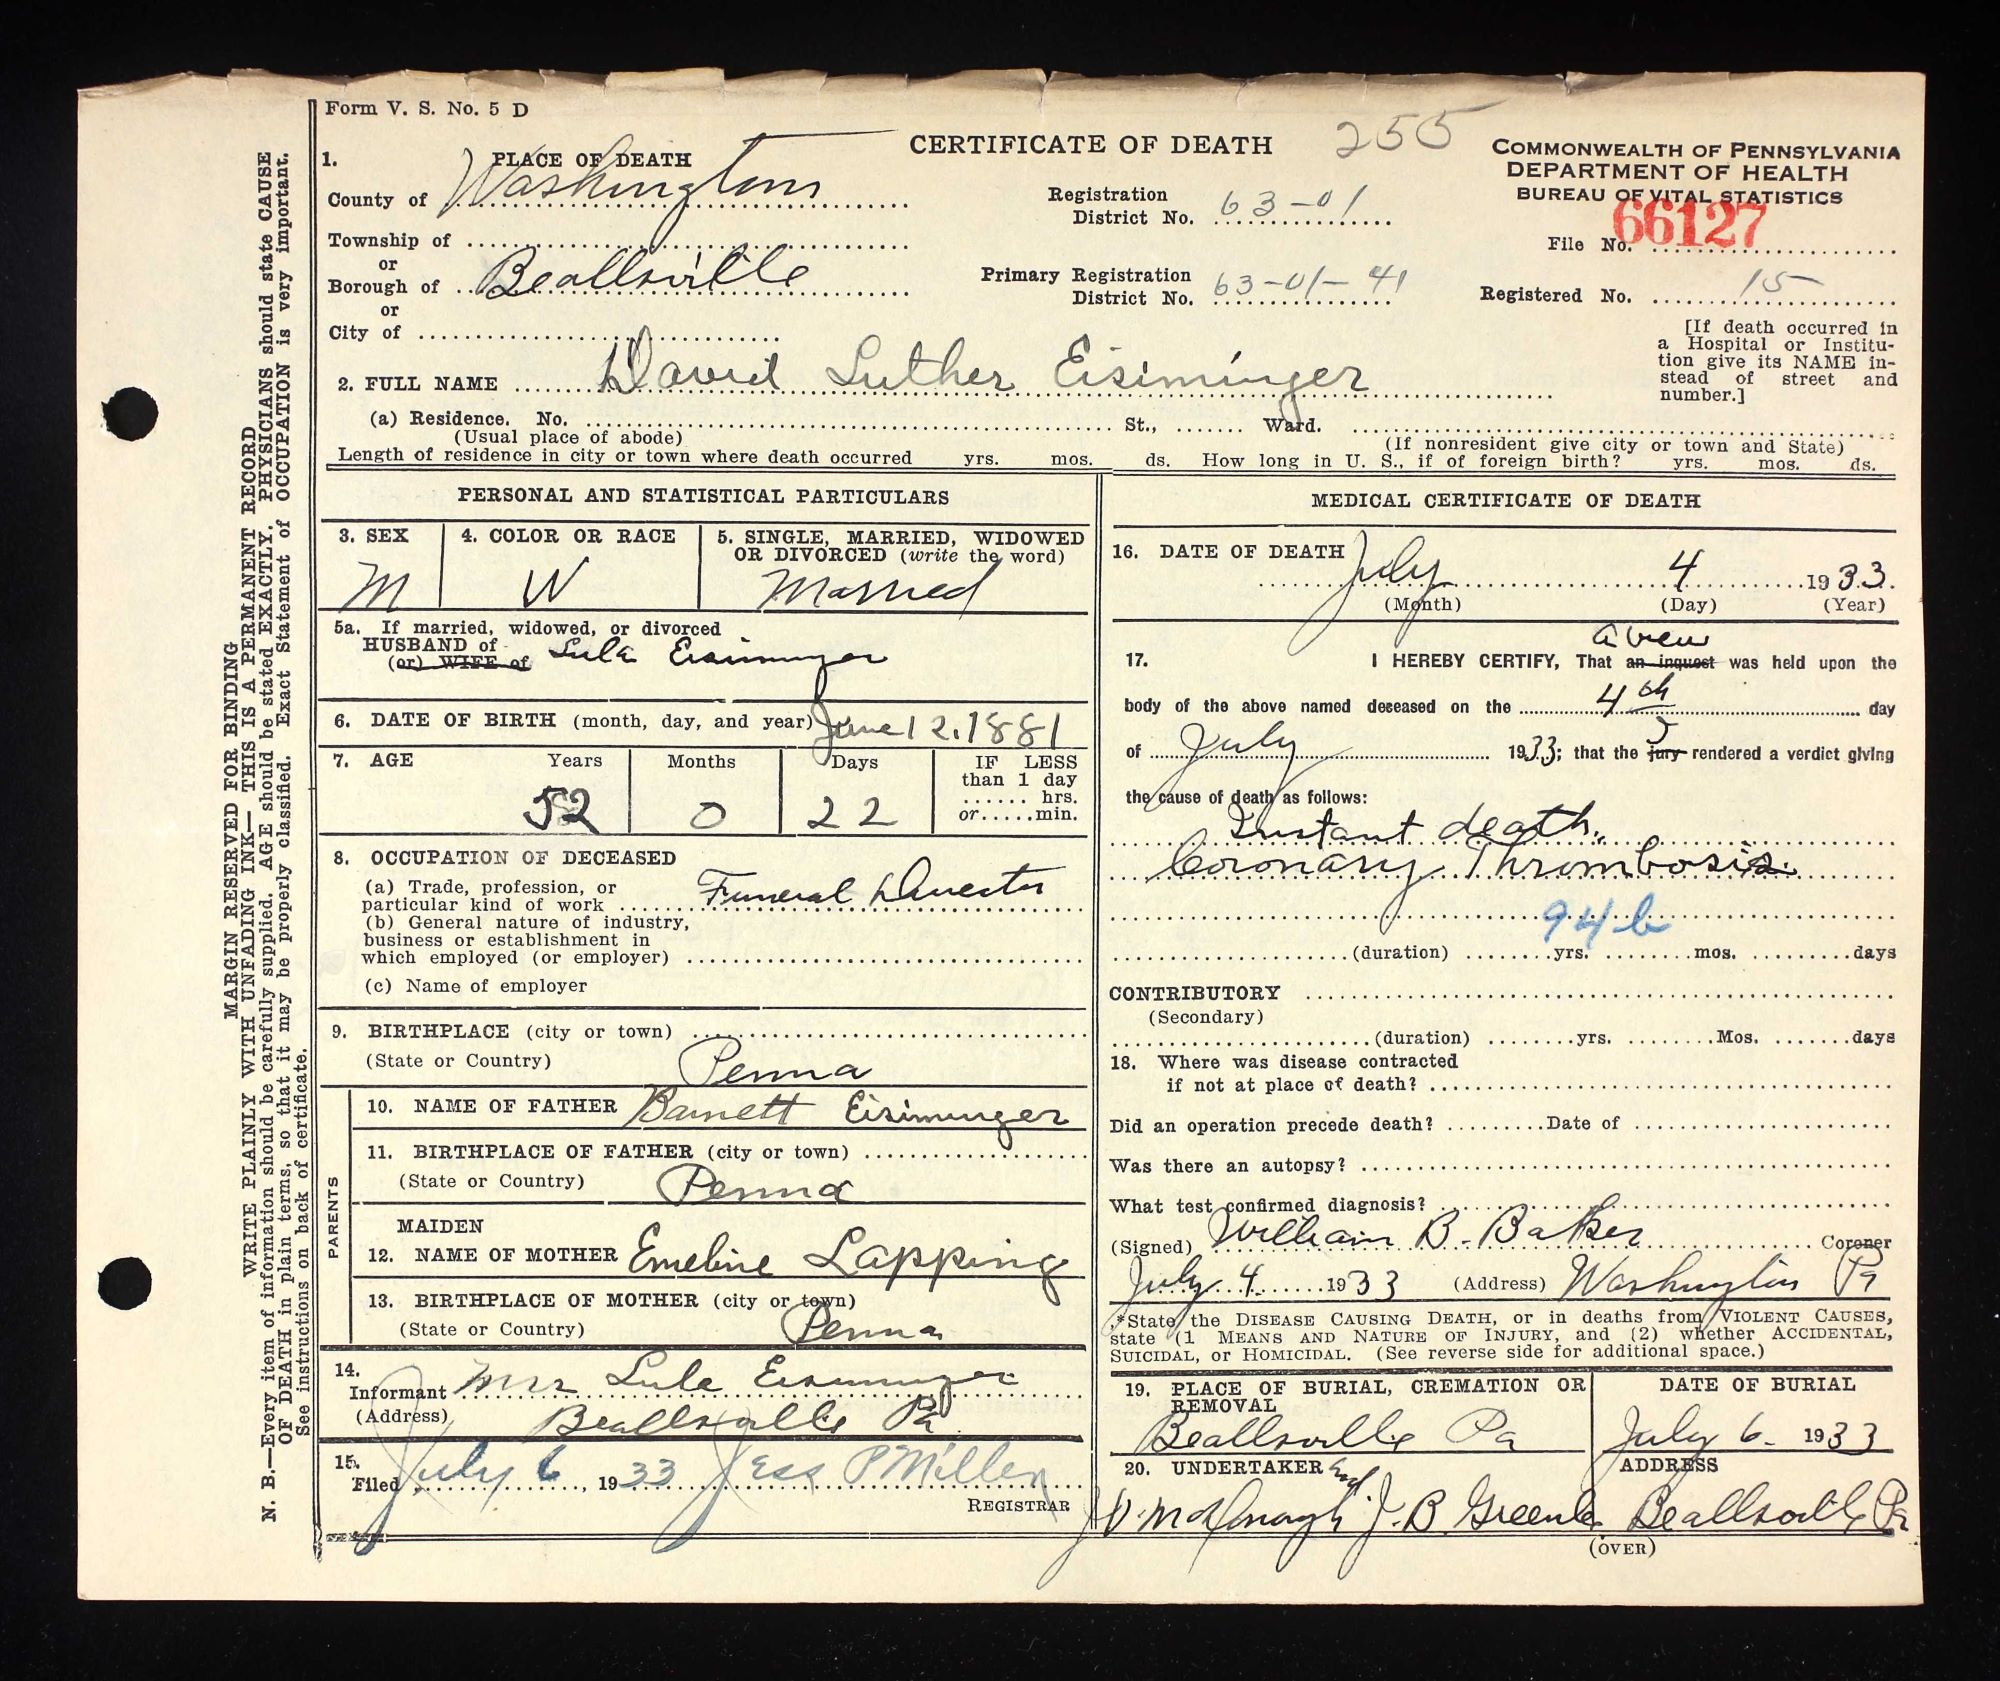 Form V. S. No. 5 D
CERTIFICATE OF DEATH
255
COMMONWEALTH OF PENNSYLVANIA
DEPARTMENT OF HEALTH
BUREAU OF VITAL STATISTICS
1. PLACE OF DEATH
County of Washington
Township of
or
Borough of Beallsville
or
City of
Registration
District No. 63-01
Primary Registration
District No. 63-01-41
File No. 66127
Registered No. 15
[If death occurred in
a Hospital or Institu-
tion give its NAME in-
stead of street and
number.]
2. FULL NAME David Luther Eisiminger
(a) Residence. No. St., Ward.
(Usual place of abode) (If nonresident give city or town and State)
Length of residence in city or town where death occurred yrs. mos. ds. How long in U. S., if of foreign birth? yrs. mos. ds.
PERSONAL AND STATISTICAL PARTICULARS
3. SEX
M
4. COLOR OR RACE
W
5. SINGLE, MARRIED, WIDOWED
OR DIVORCED (write the word)
Married
5a. If married, widowed, or divorced
HUSBAND of
(or) WIFE of Lula Eisiminger
6. DATE OF BIRTH (month, day, and year) June 12, 1881
7. AGE Years Months Days IF LESS
than 1 day
hrs.
or min.
52 0 22
8. OCCUPATION OF DECEASED
(a) Trade, profession, or
particular kind of work Funeral Director
(b) General nature of industry,
business or establishment in
which employed (or employer)
(c) Name of employer
9. BIRTHPLACE (city or town)
(State or Country) Penna
PARENTS
10. NAME OF FATHER Barnett Eisiminger
11. BIRTHPLACE OF FATHER (city or town)
(State or Country) Penna
MAIDEN
12. NAME OF MOTHER Emeline Lapping
13. BIRTHPLACE OF MOTHER (city or town)
(State or Country) Penna
14.
Informant Mrs Lula Eisiminger
(Address) Beallsville Pa
15.
Filed July 6, 1933 Jess P Miller
REGISTRAR
MEDICAL CERTIFICATE OF DEATH
16. DATE OF DEATH July 4 1933.
(Month) (Day) (Year)
a view
17. I HEREBY CERTIFY, That an inquest was held upon the
body of the above named deceased on the 4th day
of July 1933; that the jury rendered a verdict giving
the cause of death as follows:
Instant death.
Coronary Thrombosis.
94b
(duration) yrs. mos. days
CONTRIBUTORY
(Secondary)
(duration) yrs. Mos. days
18. Where was disease contracted
if not at place of death?
Did an operation precede death? Date of
Was there an autopsy?
What test confirmed diagnosis?
(Signed) William B. Baker Coroner
July 4 1933 (Address) Washington Pa
*State the DISEASE CAUSING DEATH, or in deaths from VIOLENT CAUSES,
state (1 MEANS AND NATURE OF INJURY, and (2) whether ACCIDENTAL,
SUICIDAL, or HOMICIDAL. (See reverse side for additional space.)
19. PLACE OF BURIAL, CREMATION OR
REMOVAL
Beallsville Pa
DATE OF BURIAL
July 6. 1933
20. UNDERTAKER
J. B. Greenlee
ADDRESS
Beallsville Pa
(OVER)
MARGIN RESERVED FOR BINDING
WRITE PLAINLY WITH UNFADING INK—THIS IS A PERMANENT RECORD
N. B.—Every item of information should be carefully supplied. AGE should be stated EXACTLY. PHYSICIANS should state CAUSE
OF DEATH in plain terms, so that it may be properly classified. Exact Statement of OCCUPATION is very important.
See instructions on back of certificate.